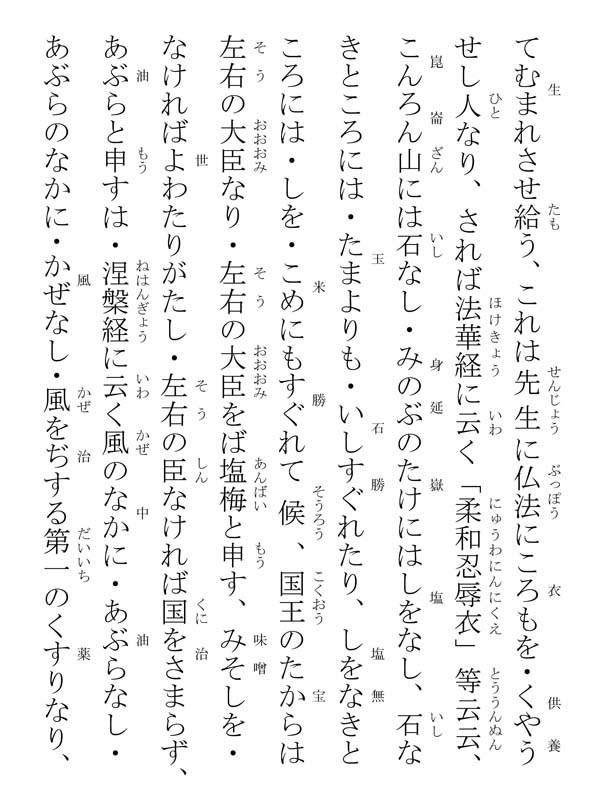 てむまれさせ給う、これは先生に仏法にころもを・くやう
せし人なり、されば法華経に云く「柔和忍辱衣」等云云、
こんろん山には石なし・みのぶのたけにはしをなし、石な
きところには・たまよりも・いしすぐれたり、しをなきと
ころには・しを・こめにもすぐれて候、国王のたからは
左右の大臣なり・左右の大臣をば塩梅と申す、みそしを・
なければよわたりがたし・左右の臣なければ国をさまらず、
あぶらと申すは・涅槃経に云く風のなかに・あぶらなし・
あぶらのなかに・かぜなし・風をぢする第一のくすりなり、